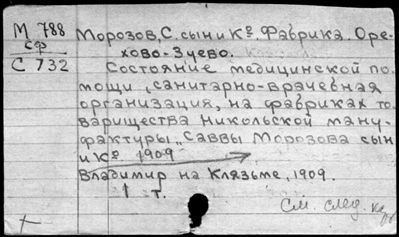 М 788
сф
С 732
Морозов, С. сын и Кº. Фабрика. Оре-
хово-Зуево.
Состояние медицинской по-
мощи, санитарно-врачебная
организация, на фабриках то-
варищества Никольской ману-
фактуры „Саввы Морозова сын
и Кº 1909
Владимир на Клязьме, 1909.
1 т.
См. след.